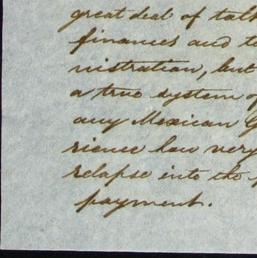 great deal of talk
finances and
nistration, but
a true system of
any Mexican
rience law very
relapse into the
payment.